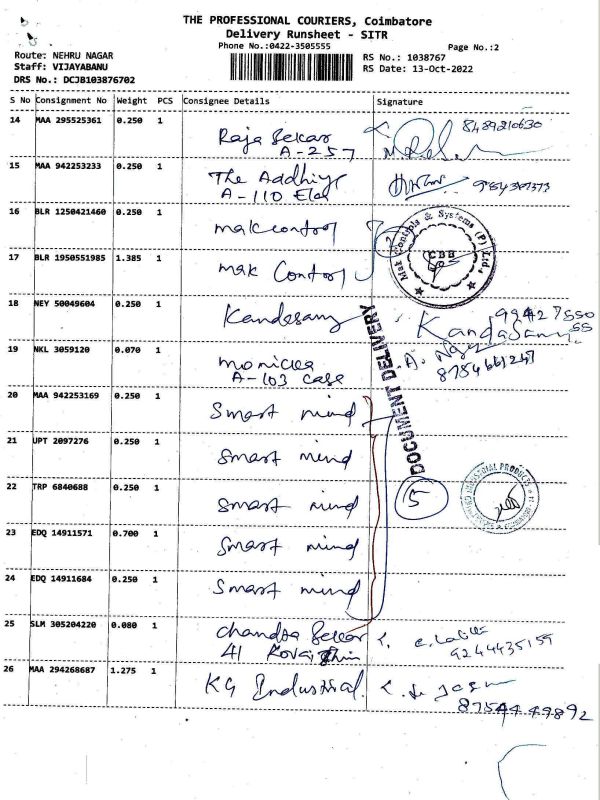 THE PROFESSIONAL COURIERS, Coimbatore
Delivery Runsheet - SITR
Phone No.:0422-3505555
Page No.:2
Route: NEHRU NAGAR
Staff: VIJAYABANU
DRS No.: DCJB103876702
RS No.: 1038767
RS Date: 13-Oct-2022
S No Consignment No Weight PCS Consignee Details Signature
14 MAA 295525361 0.250 1 Raja Sekar
A-257
8489210630
15 MAA 942253233 0.250 1 The Aadhiya
A-110
16 BLR 1250421460 0.250 1 mak control
17 BLR 1950551985 1.385 1 mak Control
Mak Controls & Systems (P) Ltd.,
CBB
18 NEY 50049604 0.250 1 Kandasamy Kandasamy
19 NKL 3059120 0.070 1 monicka
A-103 case
8754661247
DOCUMENT DELIVERY
20 MAA 942253169 0.250 1 Smart mind
21 UPT 2097276 0.250 1 Smart mind
22 TRP 6840688 0.250 1 Smart mind
5
23 EDQ 14911571 0.700 1 Smart mind
24 EDQ 14911684 0.250 1 Smart mind
25 SLM 305204220 0.080 1 Chandra Sekar
41
9244435159
26 MAA 294268687 1.275 1 KG Industrial
8754449892